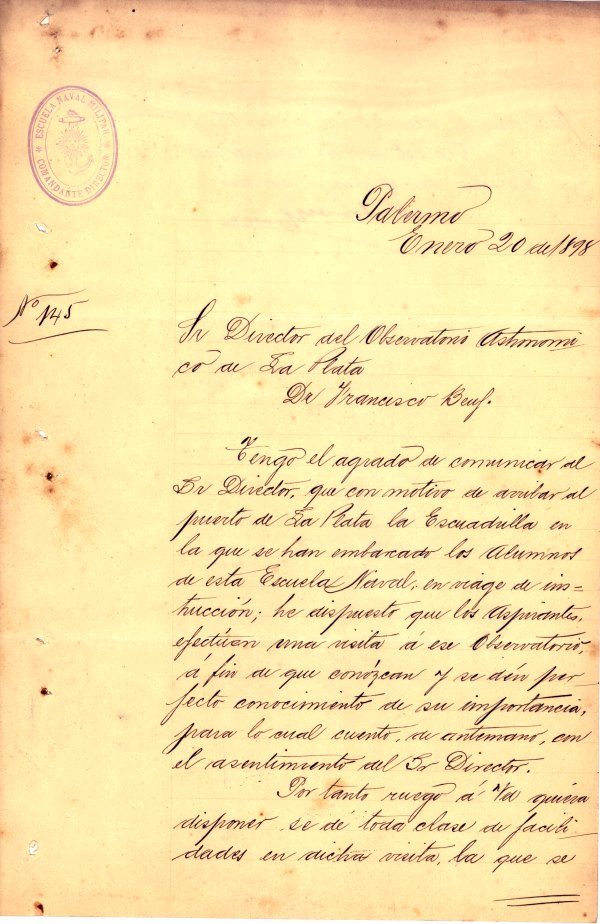 ESCUELA NAVAL MILITAR
COMANDANTE DIRECTOR
Palermo
Enero 20 de 1898
Nº 145
Sr Director del Observatorio Astronomi
co de La Plata
Dr Francisco Beuf.
Tengo el agrado de comunicar al
Sr Director, que con motivo de arribar al
puerto de La Plata la Escuadrilla en
la que se han embarcado los Alumnos
de esta Escuela Naval, en viage de ins=
trucción; he dispuesto que los Aspirantes,
efectúen una visita á ese Observatorio,
á fin de que conózcan y se dén per
fecto conocimiento de su importáncia,
para lo cual cuento, de antemano, con
el asentimiento del Sr Director.
Por tanto ruego á Vd quiera
disponer se dé toda clase de facili
dades en dicha visita, la que se